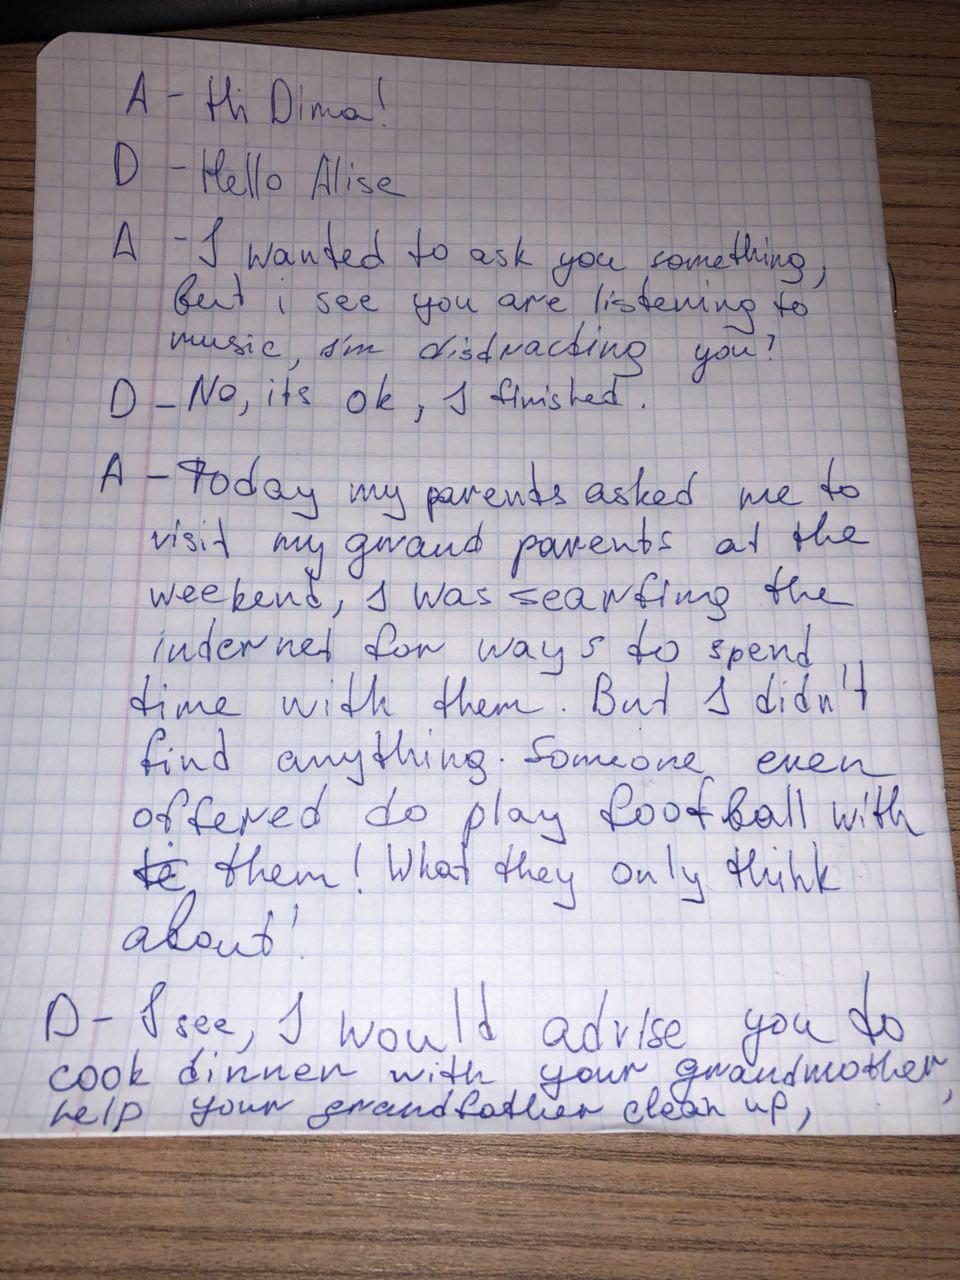 A - Hi Dima!
D - Hello Alise
A - I wanted to ask you something,
but i see you are listening to
music, I'm distracting you?
D - No, its ok, I finished.
A - Today my parents asked me to
visit my grand parents at the
weekend, I was searfing the
internet for ways to spend
time with them. But I didn't
find anything. Someone even
offered to play football with
them! What they only think
about!
D - I see, I would advise you to
cook dinner with your grandmother,
help your grandfather clean up,